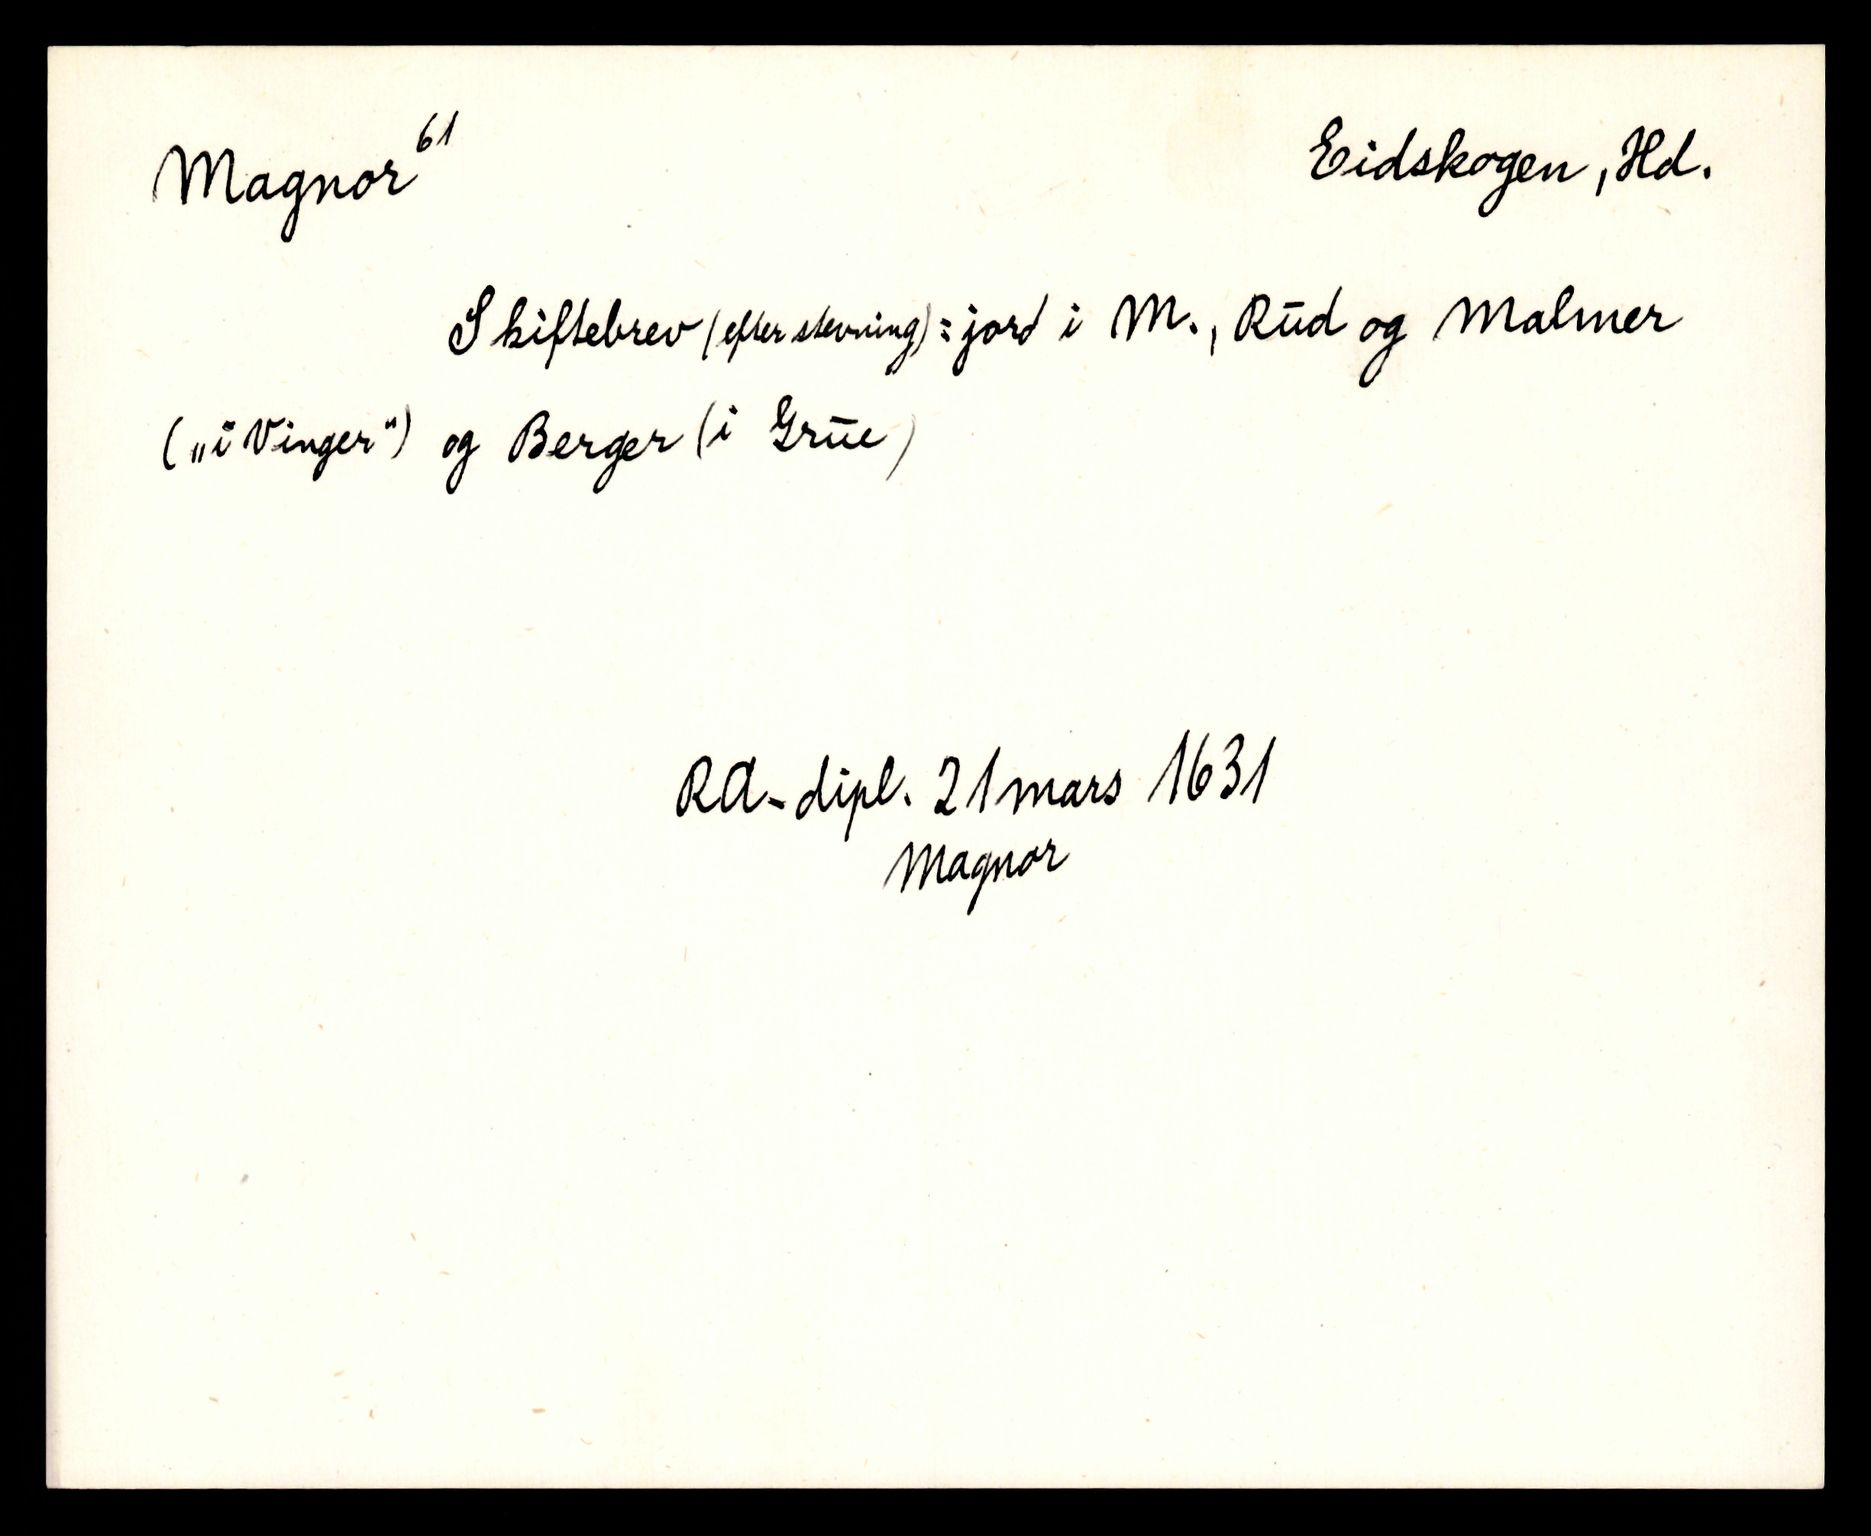 Magnor⁶¹ Eidskogen, Hd.
Skiftebrev (efter stevning): jord i M., Rūd og Malmer
(„i Vinger“) og Berger (i Grūe)
RA-dipl. 21 mars 1631
Magnor